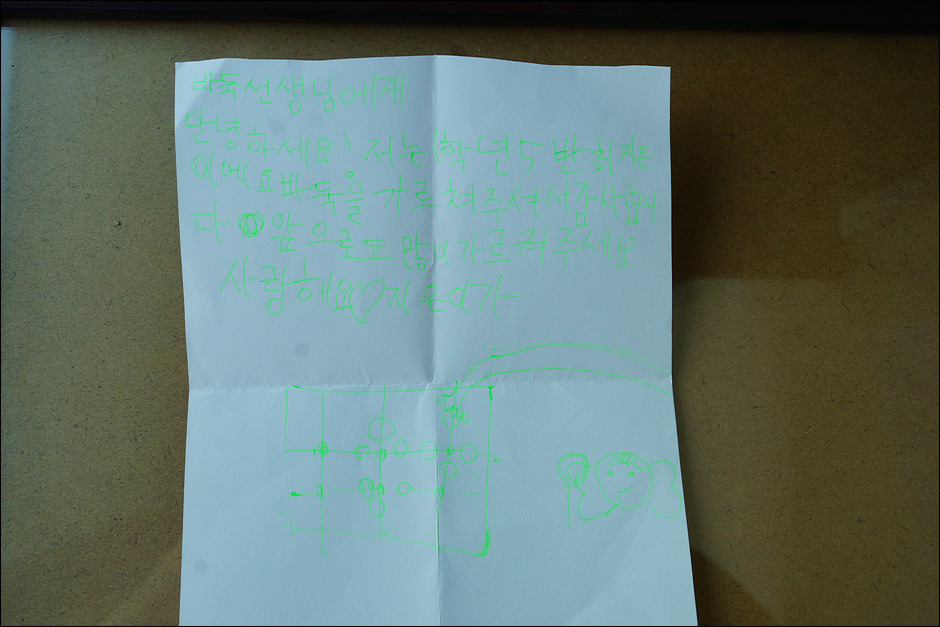 바둑선생님에게
안녕하세요 저는 1학년 5반 최지은
이에요 바둑을 가르쳐주셔서감사합니
다 앞으로도 많이 가르쳐 주세요
사랑해요♡지은이가